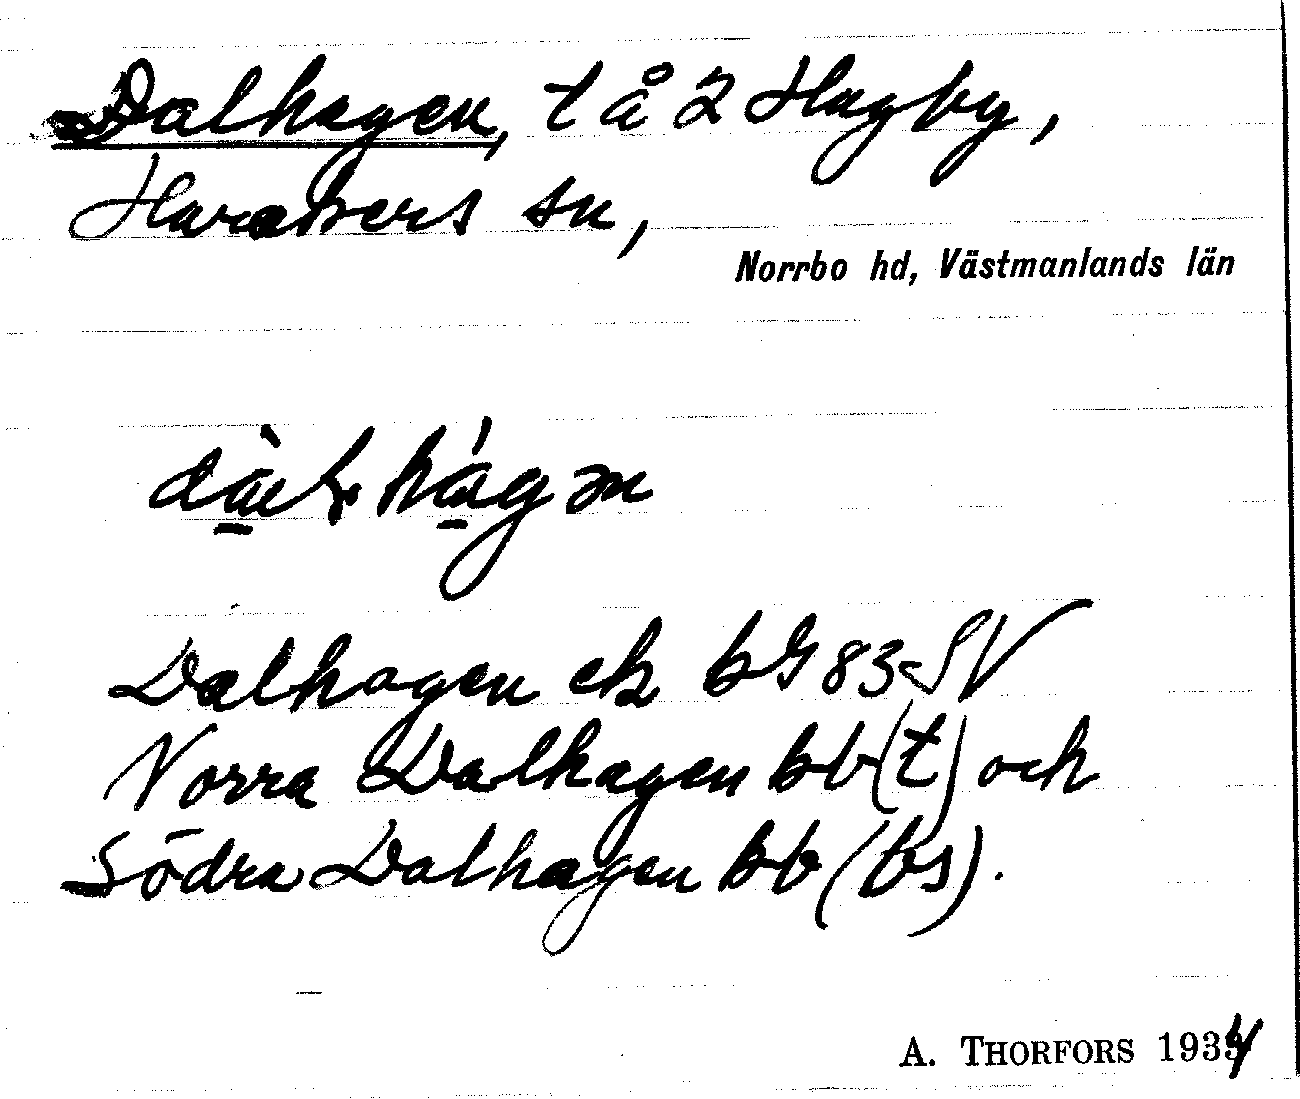 Dalhagen, t å 2 Hagby,
Harakers sn,
Norrbo hd, Västmanlands län
Dalhagen ek bG 83 SV
Norra Dalhagen bb (t) och
Södra Dalhagen bb (bs).
A. THORFORS 1934